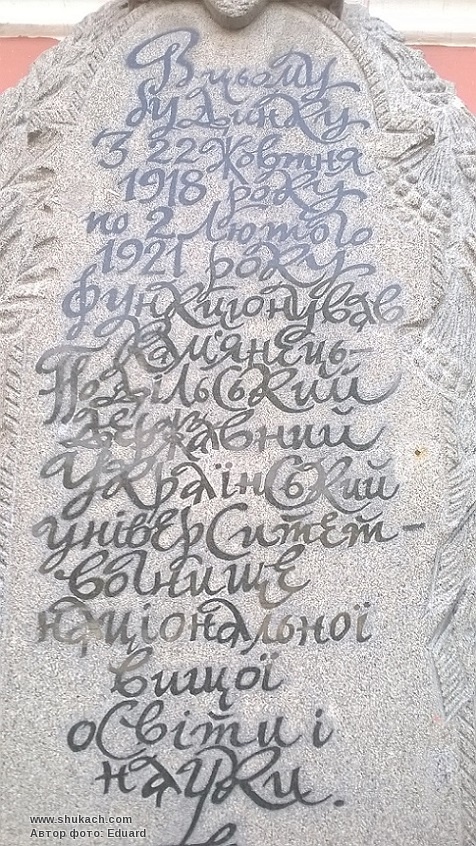 В цьому
будинку
З 22 жовтня
1918 року
по 2 лютого
1921 року
функціонував
Кам'янець-
Подільський
державний
Український
університет -
вогнище
національної
вищої
освіти і
науки.
www.shukach.com
Автор фото: Eduard